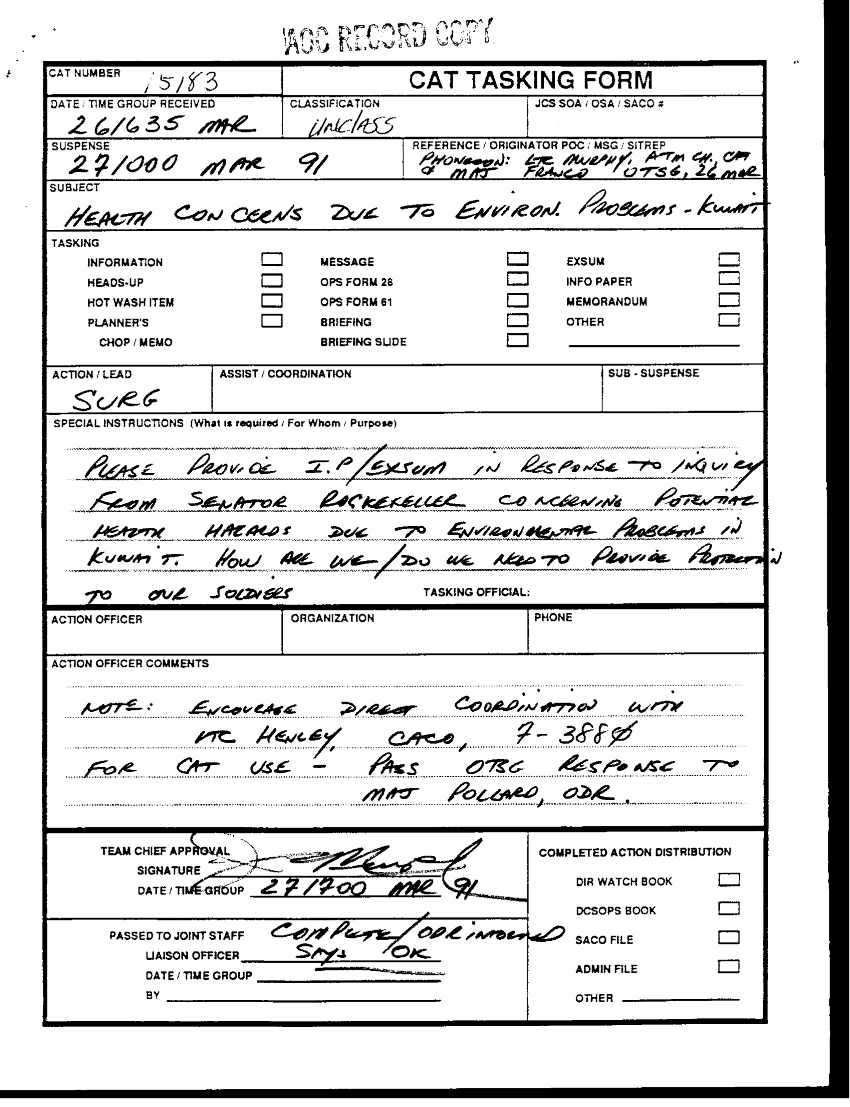 AOC RECORD COPY
CAT NUMBER 15183
CAT TASKING FORM
DATE / TIME GROUP RECEIVED
261635 MAR
CLASSIFICATION
UNCLASS
JCS SOA / OSA / SACO #
SUSPENSE
271000 MAR 91
REFERENCE / ORIGINATOR POC / MSG / SITREP
PHONECON: LTC MURPHY, ATM CH, CAT
& MAJ FRANCO OTSG, 26 MAR
SUBJECT
HEALTH CONCERNS DUE TO ENVIRON. PROBLEMS - KUWAIT
TASKING
INFORMATION
MESSAGE
EXSUM
HEADS-UP
OPS FORM 28
INFO PAPER
HOT WASH ITEM
OPS FORM 61
MEMORANDUM
PLANNER'S
BRIEFING
OTHER
CHOP / MEMO
BRIEFING SLIDE
ACTION / LEAD
SURG
ASSIST / COORDINATION
SUB - SUSPENSE
SPECIAL INSTRUCTIONS (What is required / For Whom / Purpose)
PLEASE PROVIDE I.P/EXSUM IN RESPONSE TO INQUIRY
FROM SENATOR ROCKEFELLER CONCERNING POTENTIAL
HEALTH HAZARDS DUE TO ENVIRONMENTAL PROBLEMS IN
KUWAIT. HOW ARE WE/DO WE NEED TO PROVIDE PROTECTION
TO OUR SOLDIERS
TASKING OFFICIAL:
ACTION OFFICER
ORGANIZATION
PHONE
ACTION OFFICER COMMENTS
NOTE: ENCOURAGE DIRECT COORDINATION WITH
LTC HENLEY, CACO, 7-3880
FOR CAT USE - PASS OTSG RESPONSE TO
MAJ POLLARD, ODR.
TEAM CHIEF APPROVAL
SIGNATURE
DATE / TIME GROUP 271700 MAR 91
PASSED TO JOINT STAFF COMPLETE/ODR INFORMED
LIAISON OFFICER SAYS OK
DATE / TIME GROUP
BY
COMPLETED ACTION DISTRIBUTION
DIR WATCH BOOK
DCSOPS BOOK
SACO FILE
ADMIN FILE
OTHER